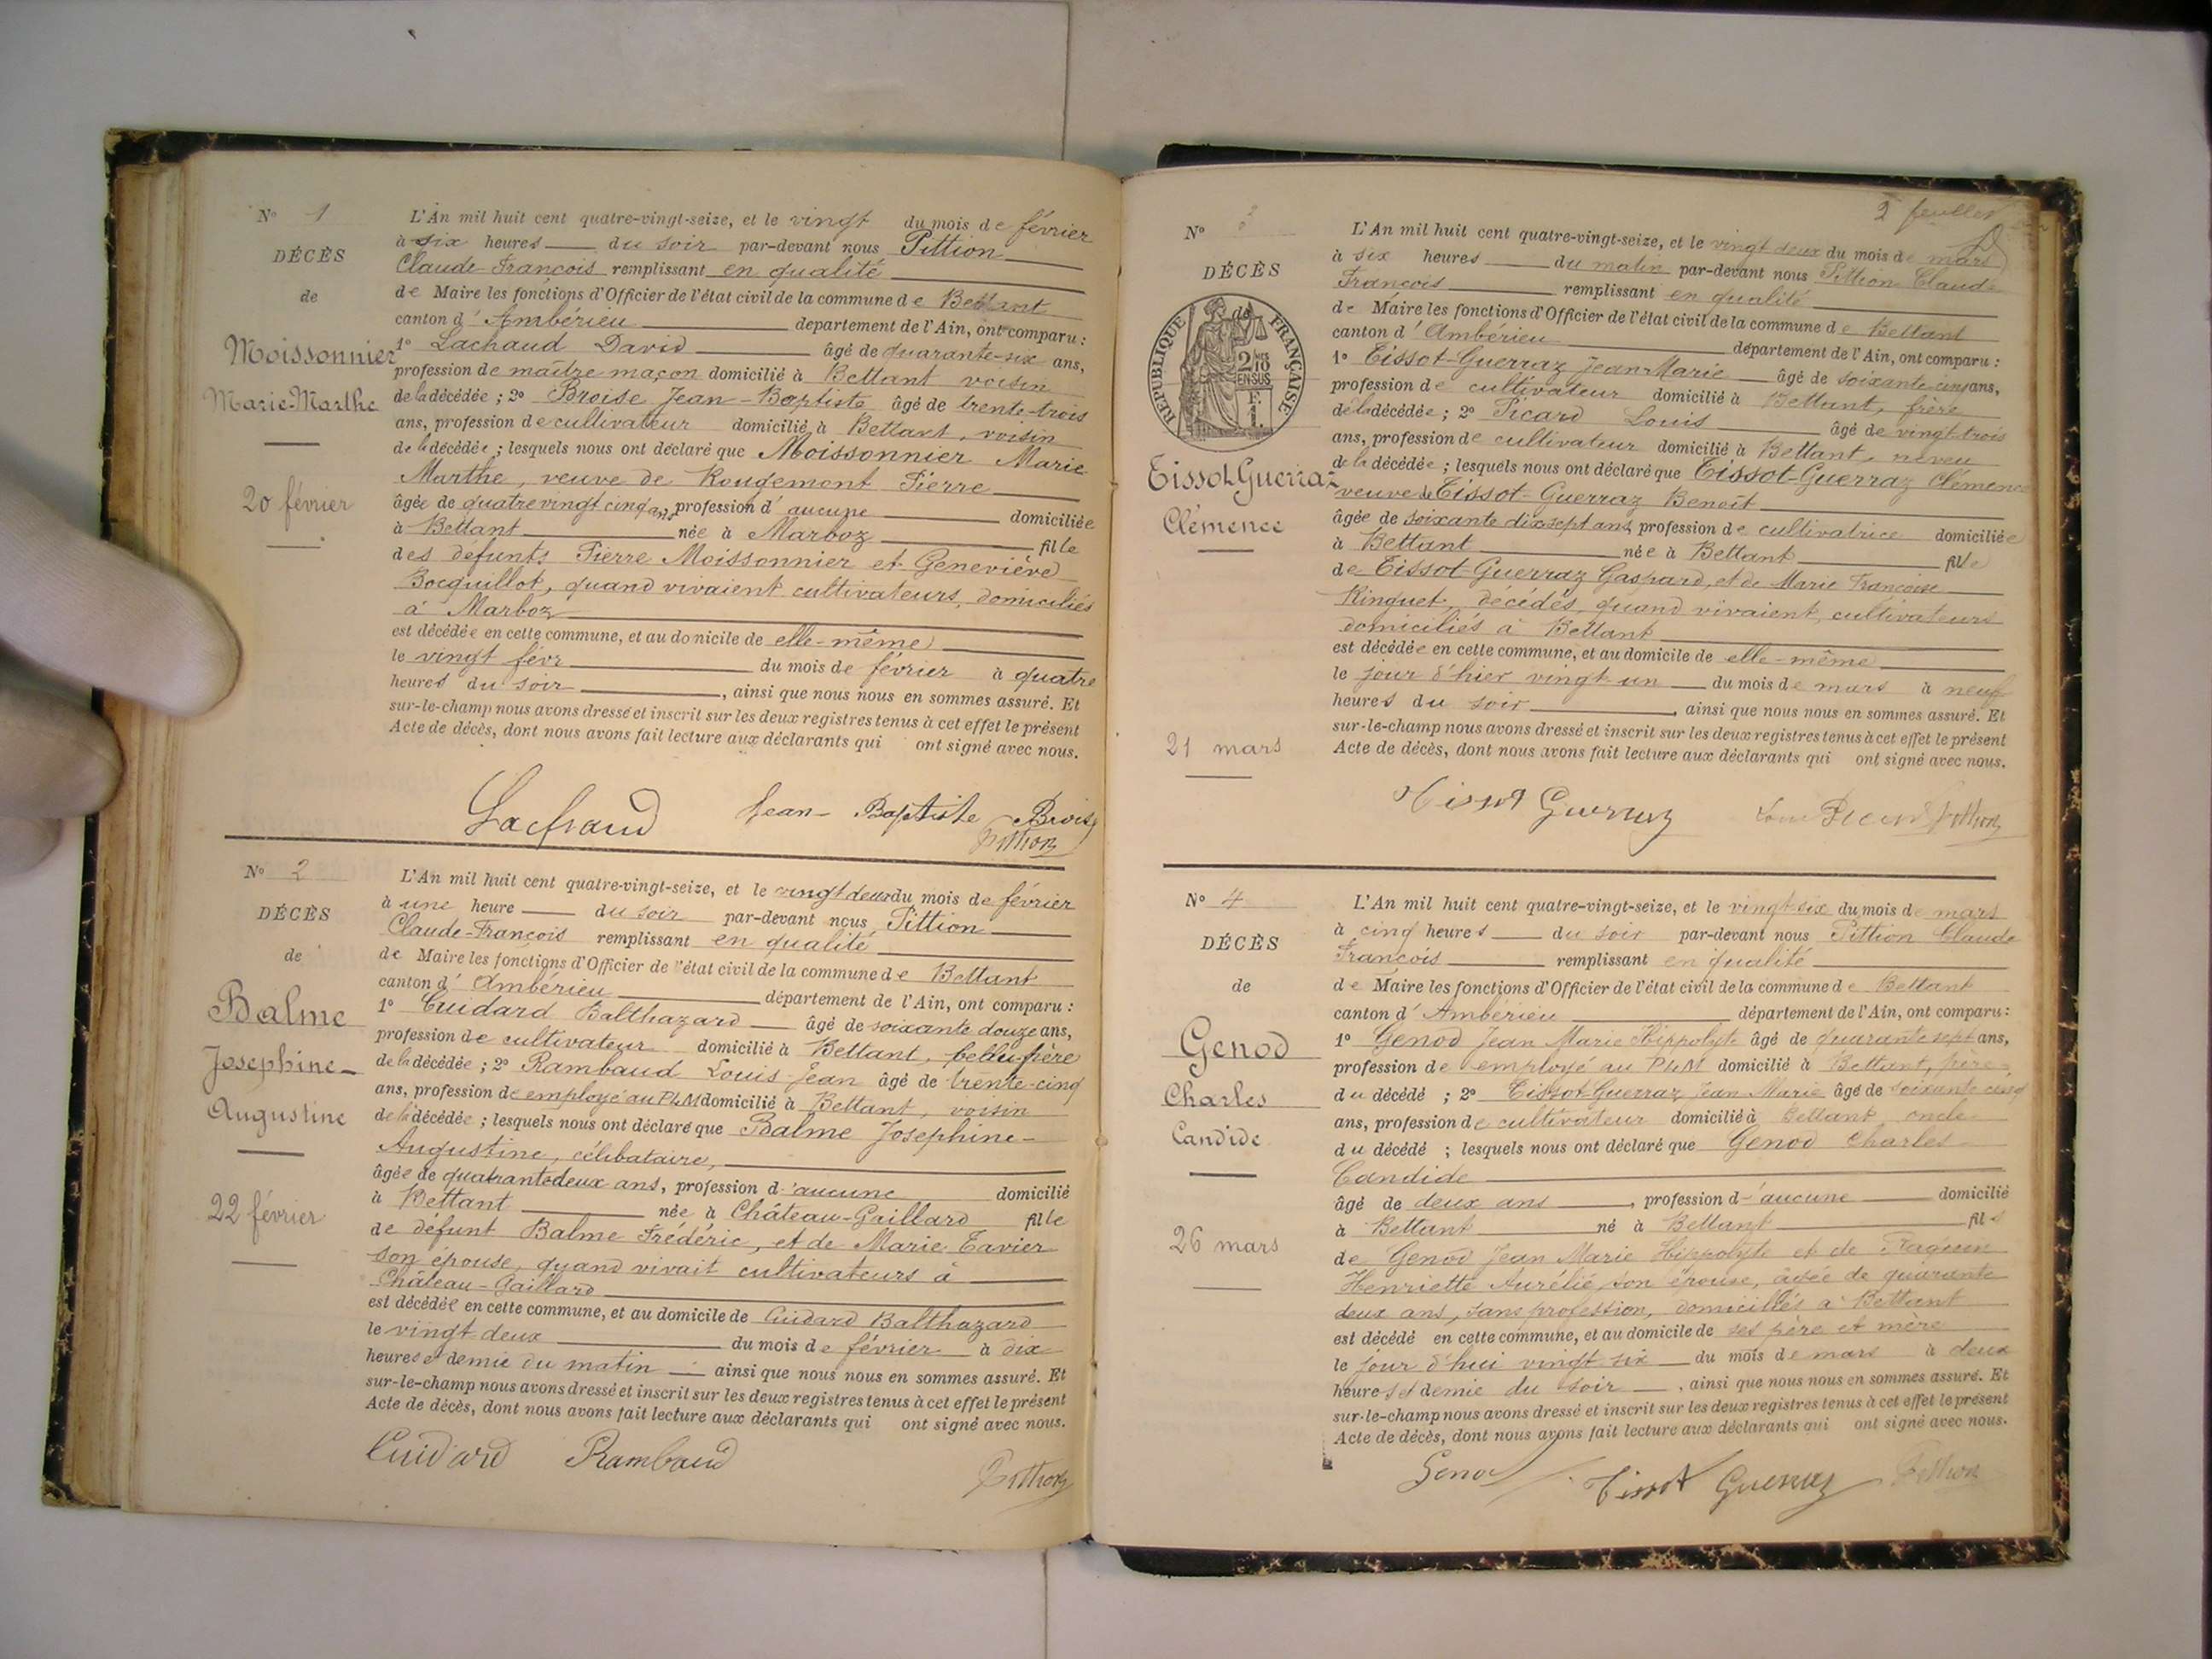 N° 1
DÉCÈS
de
Moissonnier
Marie-Marthe
20 février
L'An mil huit cent quatre-vingt-seize, et le vingt du mois de février
à six heures du soir par-devant nous Pittion
Claude-François remplissant en qualité
de Maire les fonctions d'Officier de l'état civil de la commune de Bettant
canton d'Ambérieu département de l'Ain, ont comparu :
1° Lachaud David âgé de quarante-six ans,
profession de maître maçon domicilié à Bettant voisin
de la décédée ; 2° Broise Jean-Baptiste âgé de trente-trois
ans, profession de cultivateur domicilié à Bettant, voisin
de la décédée ; lesquels nous ont déclaré que Moissonnier Marie
Marthe, veuve de Rougemont Pierre
âgée de quatre vingt cinq ans, profession d'aucune domiciliée
à Bettant née à Marboz fille
des défunts Pierre Moissonnier et Geneviève
Bocquillot, quand vivaient cultivateurs, domiciliés
à Marboz
est décédée en cette commune, et au domicile de elle-même
le vingt févr du mois de février à quatre
heures du soir, ainsi que nous nous en sommes assuré. Et
sur-le-champ nous avons dressé et inscrit sur les deux registres tenus à cet effet le présent
Acte de décès, dont nous avons fait lecture aux déclarants qui ont signé avec nous.
Lachaud Jean-Baptiste Brois
Pittion
N° 2
DÉCÈS
de
Balme
Josephine-
Augustine
22 février
L'An mil huit cent quatre-vingt-seize, et le vingt deux du mois de février
à une heure du soir par-devant nous Pittion
Claude-François remplissant en qualité
de Maire les fonctions d'Officier de l'état civil de la commune de Bettant
canton d'Ambérieu département de l'Ain, ont comparu :
1° Cuidard Balthazard âgé de soixante douze ans,
profession de cultivateur domicilié à Bettant, beau-frère
de la décédée ; 2° Rambaud Louis-Jean âgé de trente-cinq
ans, profession de employé au PLM domicilié à Bettant, voisin
de la décédée ; lesquels nous ont déclaré que Balme Josephine-
Augustine, célibataire,
âgée de quatrante deux ans, profession d'aucune domicilié
à Bettant née à Château-Gaillard fille
de défunt Balme Frédéric, et de Marie Tavier
son épouse, quand vivait cultivateurs à
Château-Gaillard
est décédée en cette commune, et au domicile de Cuidard Balthazard
le vingt deux du mois de février à dix
heures et demie du matin ainsi que nous nous en sommes assuré. Et
sur-le-champ nous avons dressé et inscrit sur les deux registres tenus à cet effet le présent
Acte de décès, dont nous avons fait lecture aux déclarants qui ont signé avec nous.
Cuidard Rambaud Pittion
2e feuillet
N° 3
DÉCÈS
de
RÉPUBLIQUE FRANÇAISE
2/10 EN SUS
F. 1.
Tissot Guerraz
Clémence
21 mars
L'An mil huit cent quatre-vingt-seize, et le vingt deux du mois de mars
à six heures du matin par-devant nous Pittion Claude
François remplissant en qualité
de Maire les fonctions d'Officier de l'état civil de la commune de Bettant
canton d'Ambérieu département de l'Ain, ont comparu :
1° Tissot-Guerraz Jean-Marie âgé de soixante cinq ans,
profession de cultivateur domicilié à Bettant, frère
de la décédée ; 2° Picard Louis âgé de vingt-trois
ans, profession de cultivateur domicilié à Bettant, neveu
de la décédée ; lesquels nous ont déclaré que Tissot-Guerraz Clémence
veuve de Tissot-Guerraz Benoît
âgée de soixante dix sept ans, profession de cultivatrice domiciliée
à Bettant née à Bettant fille
de Tissot-Guerraz Gaspard, et de Marie Françoise
Ringuet, décédés, quand vivaient, cultivateurs
domiciliés à Bettant
est décédée en cette commune, et au domicile de elle-même
le jour d'hier vingt-un du mois de mars à neuf
heures du soir, ainsi que nous nous en sommes assuré. Et
sur-le-champ nous avons dressé et inscrit sur les deux registres tenus à cet effet le présent
Acte de décès, dont nous avons fait lecture aux déclarants qui ont signé avec nous.
Tissot Guerraz Louis Picard Pittion
N° 4
DÉCÈS
de
Genod
Charles
Candide
26 mars
L'An mil huit cent quatre-vingt-seize, et le vingt-six du mois de mars
à cinq heures du soir par-devant nous Pittion Claude
François remplissant en qualité
de Maire les fonctions d'Officier de l'état civil de la commune de Bettant
canton d'Ambérieu département de l'Ain, ont comparu :
1° Genod Jean Marie Hippolyte âgé de quarante sept ans,
profession de employé au PLM domicilié à Bettant, père
du décédé ; 2° Tissot-Guerraz Jean Marie âgé de soixante cinq
ans, profession de cultivateur domicilié à Bettant oncle
du décédé ; lesquels nous ont déclaré que Genod Charles
Candide
âgé de deux ans, profession d'aucune domicilié
à Bettant né à Bettant fils
de Genod Jean Marie Hippolyte et de
Henriette Aurélie, son épouse, âgée de quarante
deux ans, sans profession, domiciliés à Bettant
est décédé en cette commune, et au domicile de ses père et mère
le jour d'hui vingt six du mois de mars à deux
heures et demie du soir, ainsi que nous nous en sommes assuré. Et
sur-le-champ nous avons dressé et inscrit sur les deux registres tenus à cet effet le présent
Acte de décès, dont nous avons fait lecture aux déclarants qui ont signé avec nous.
Genod Tissot Guerraz Pittion